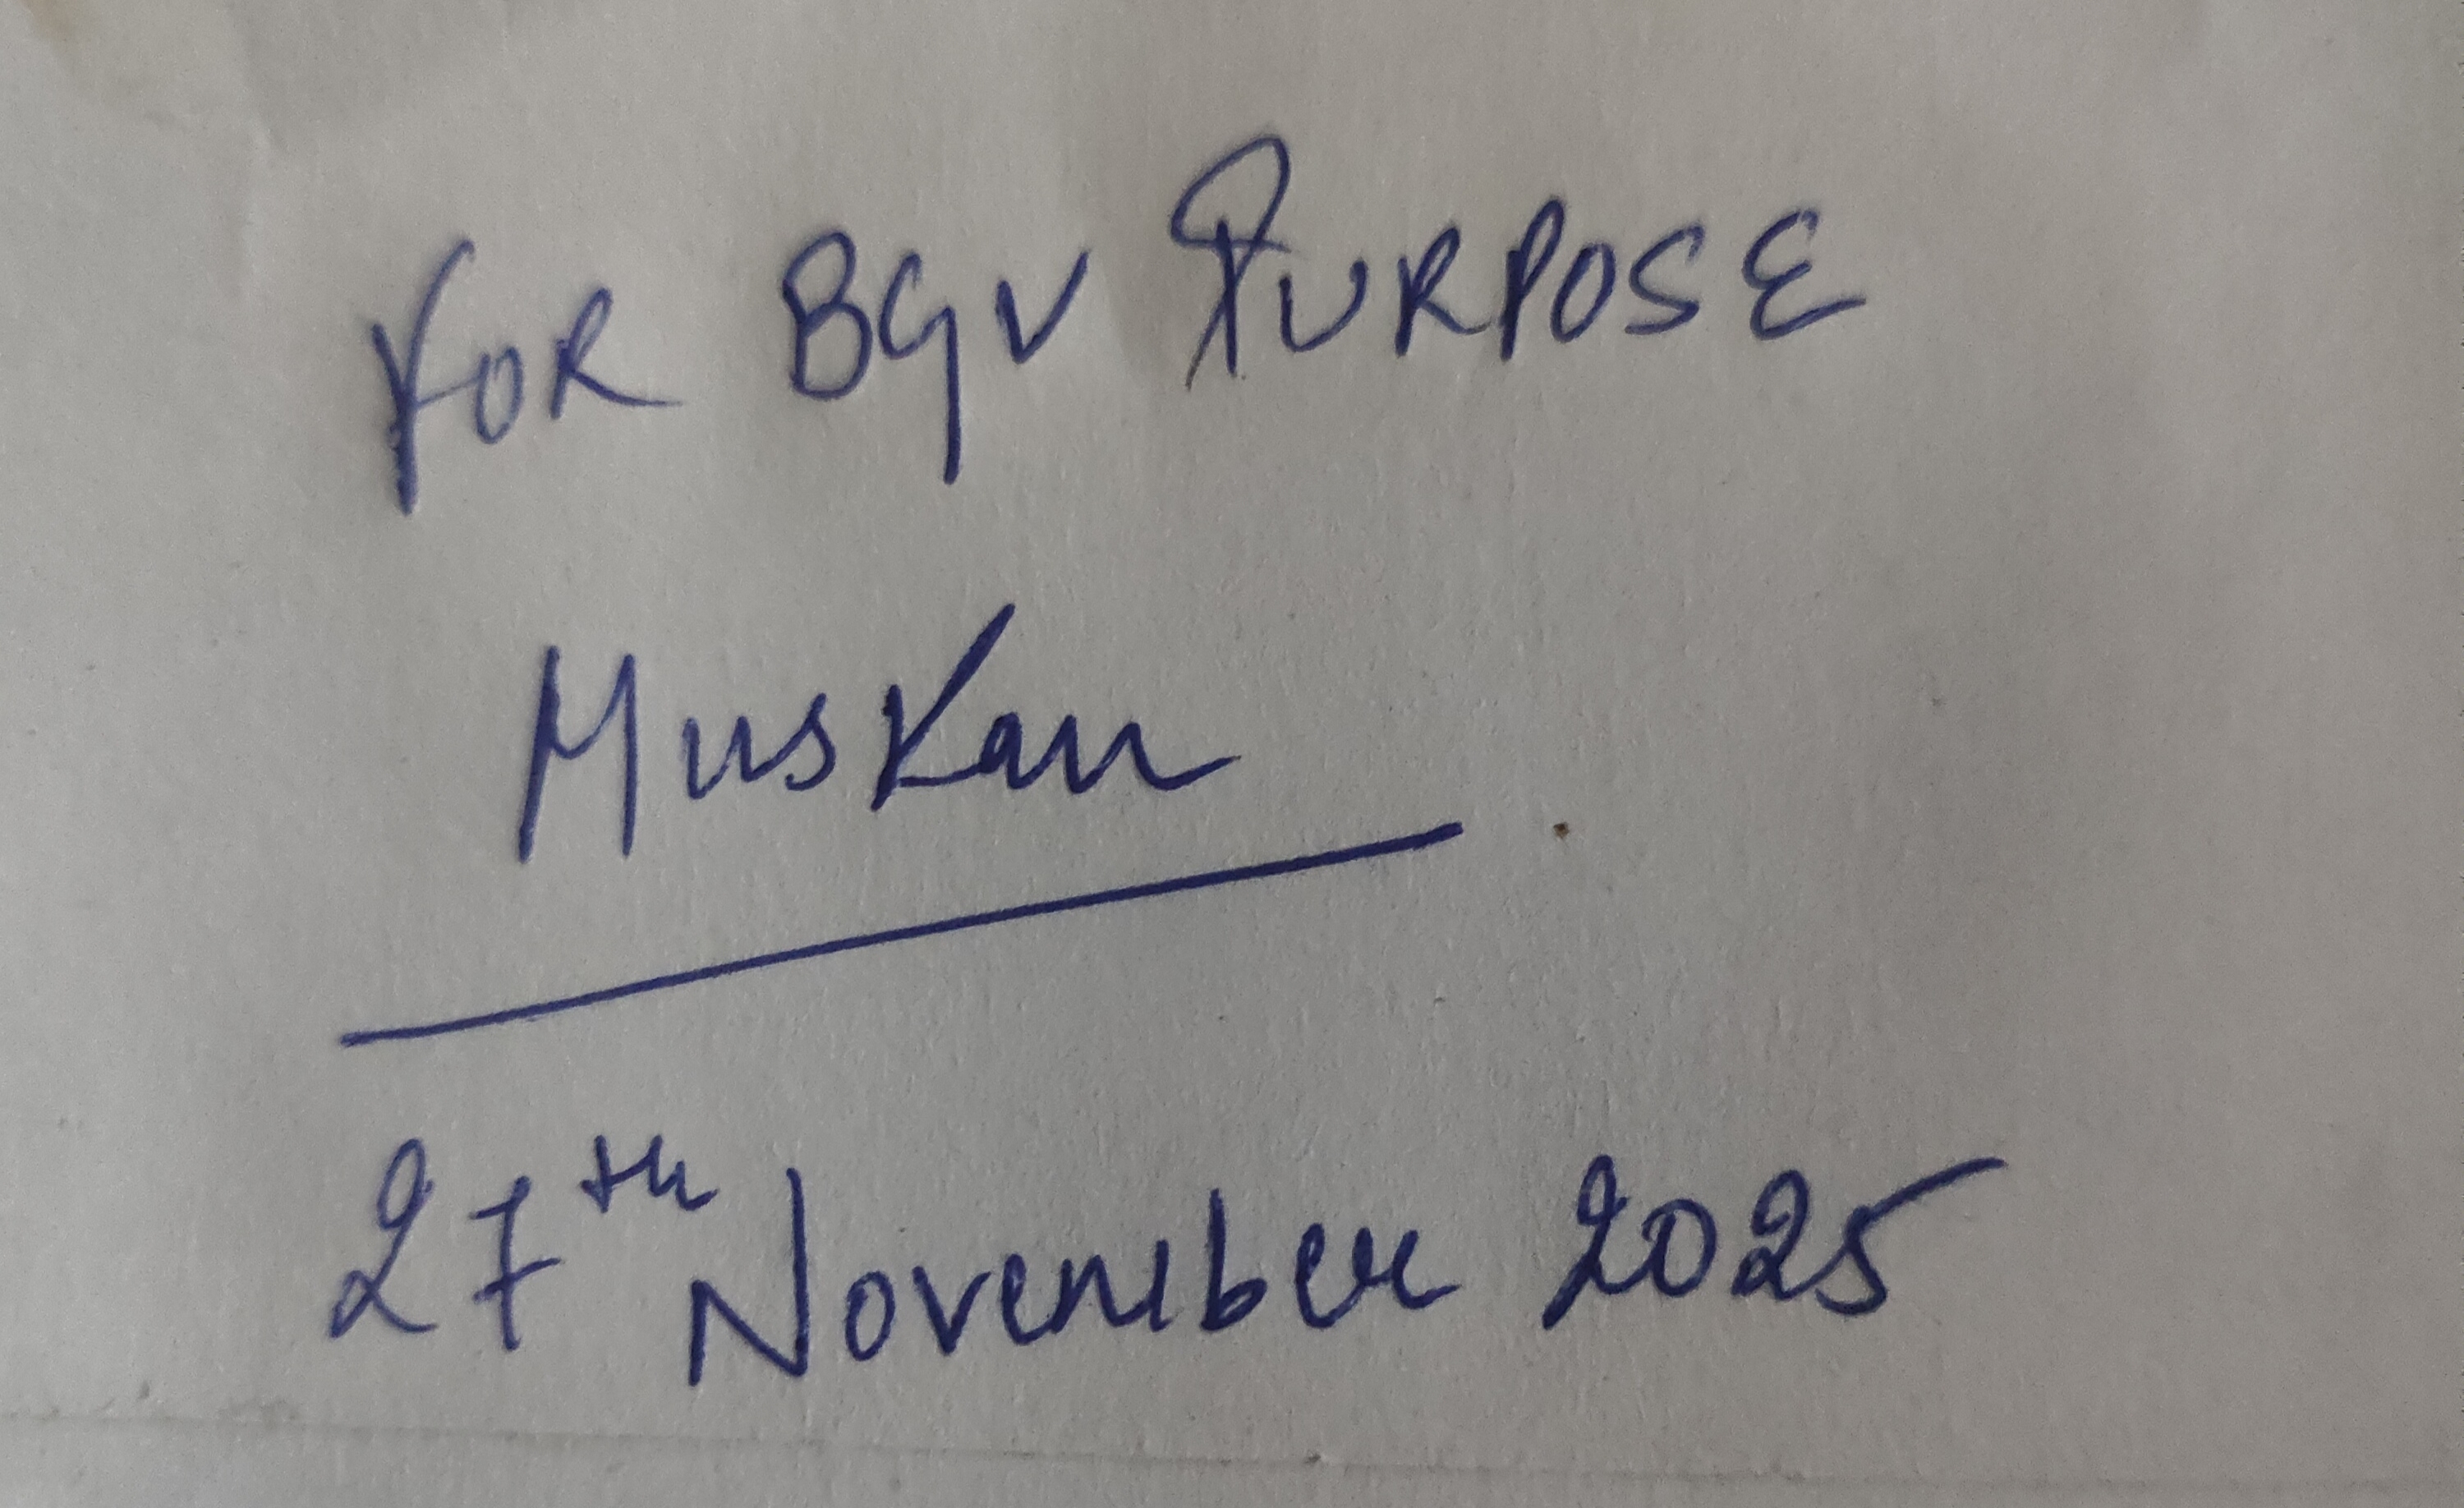 FOR BGV PURPOSE
Muskan
27th November 2025